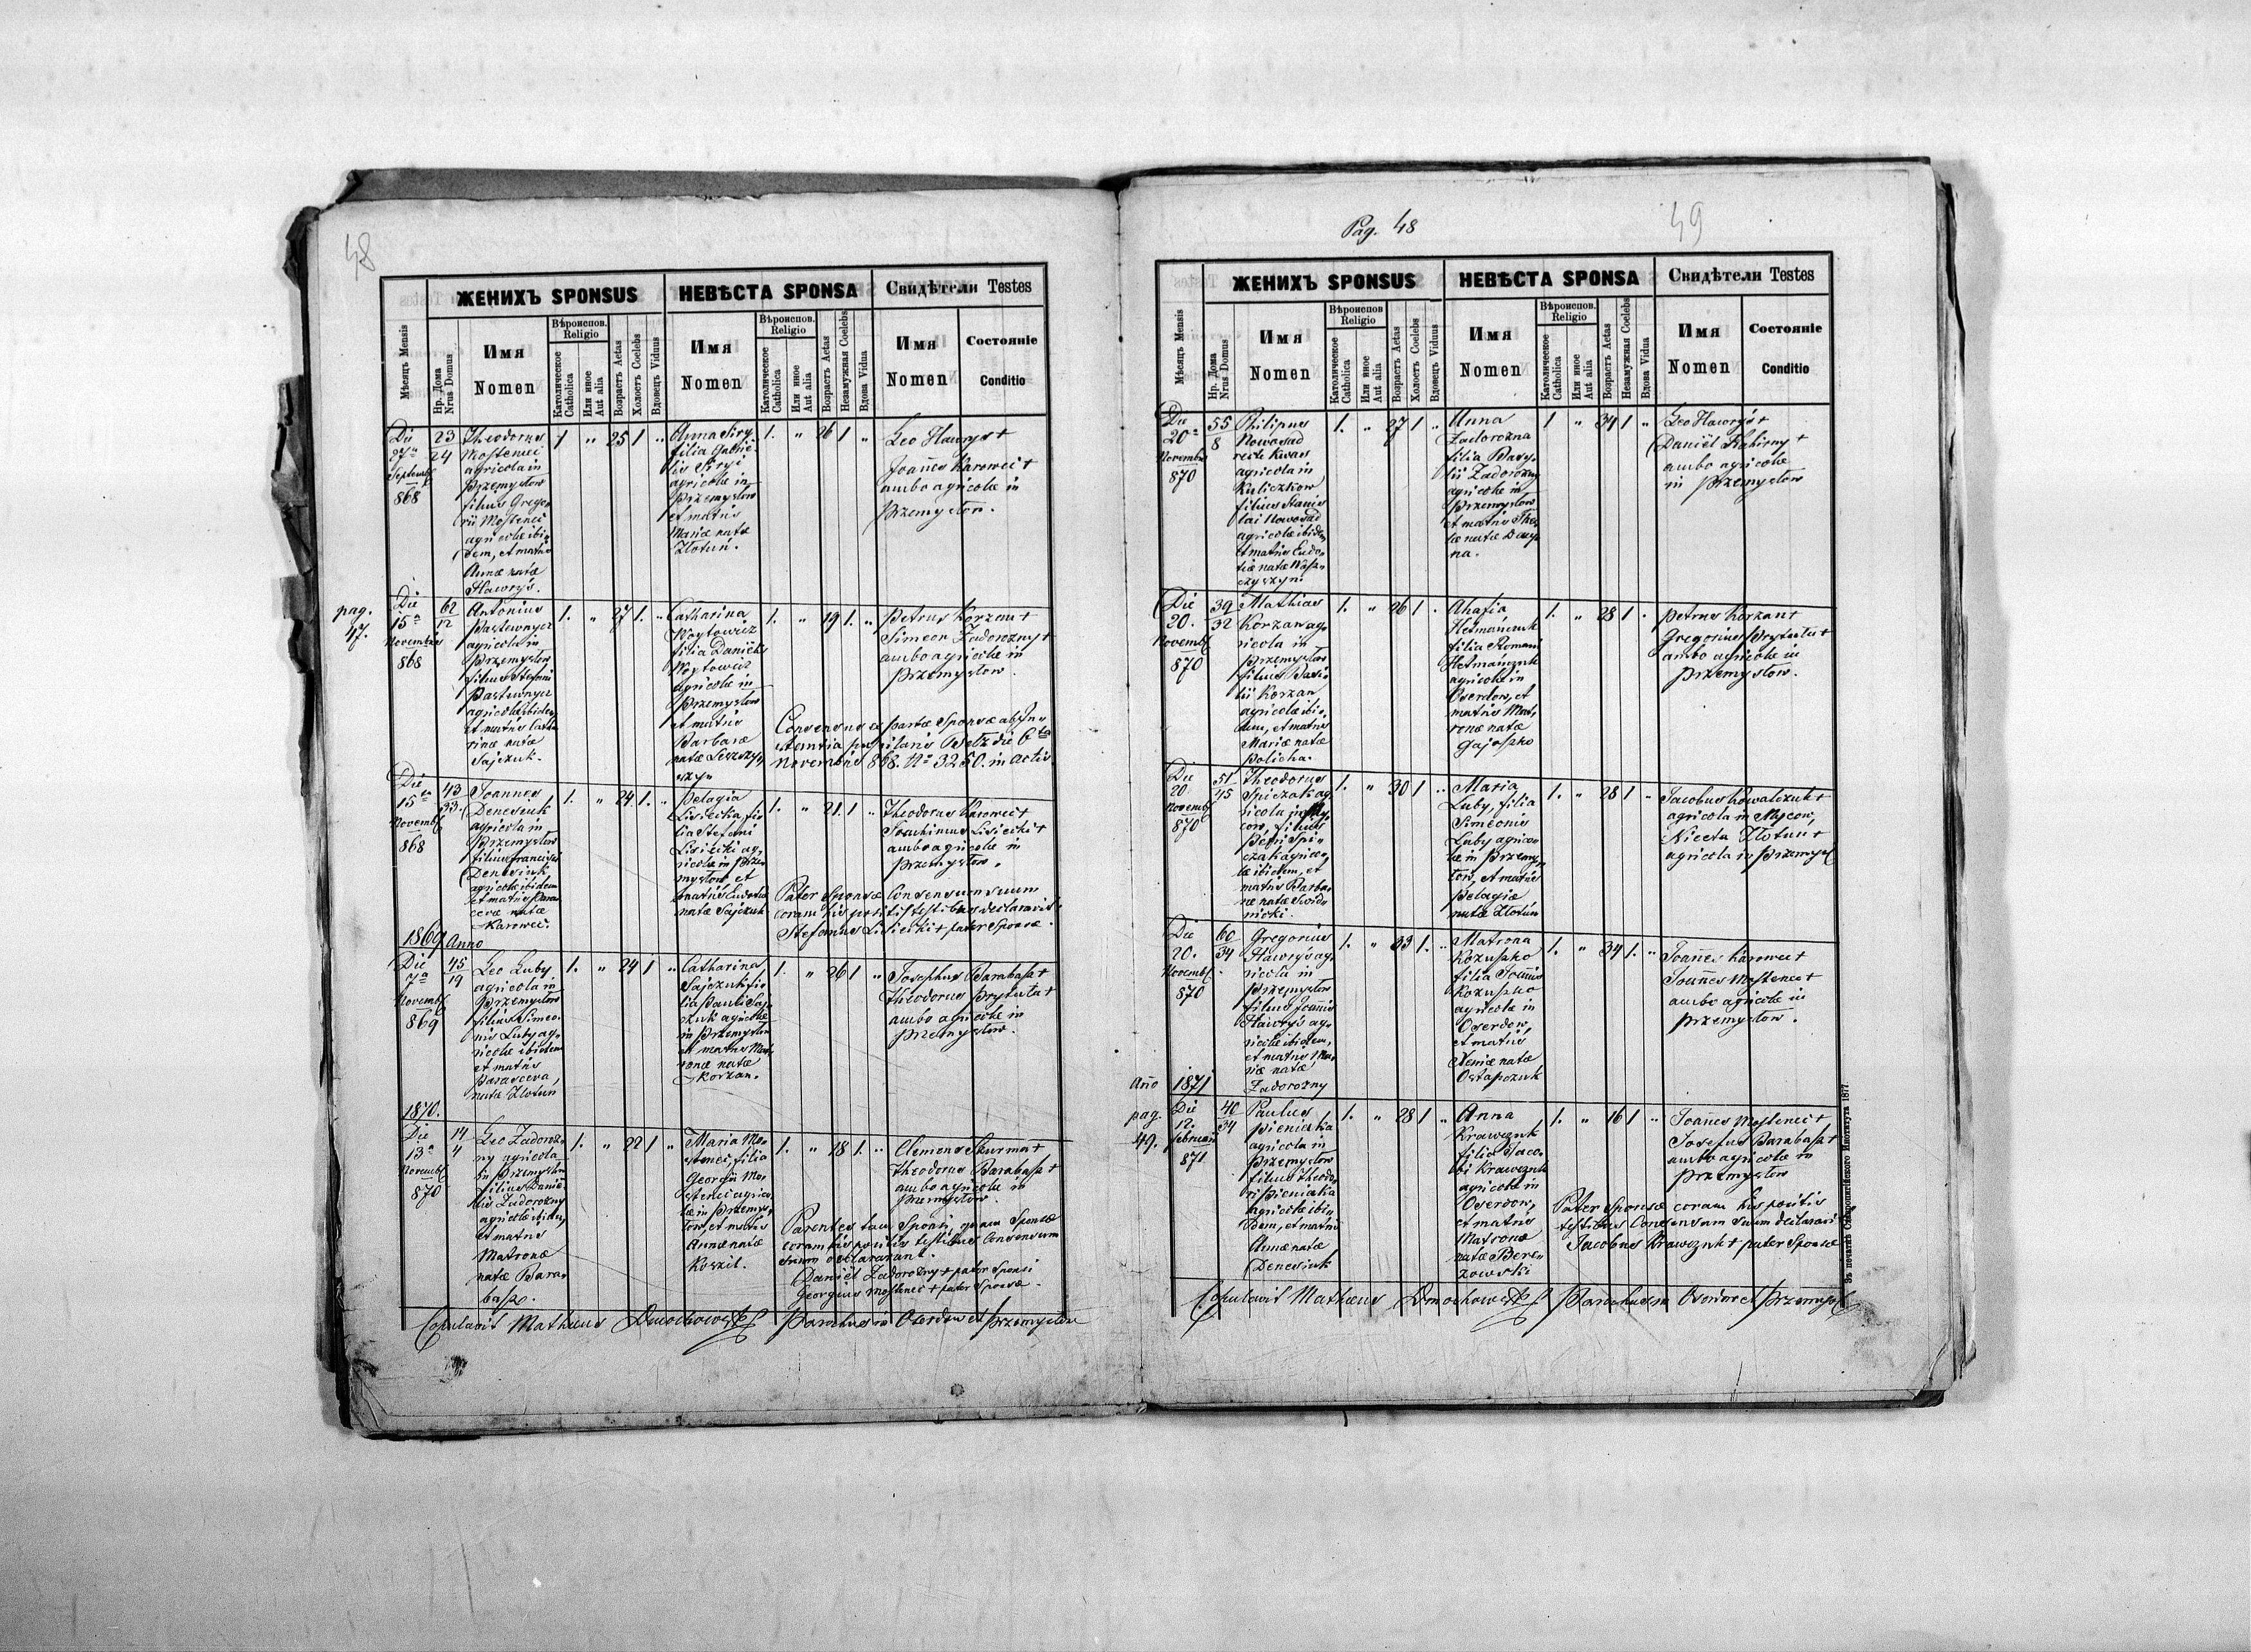 48
ЖЕНИХЪ SPONSUS
НЕВѢСТА SPONSA
Свидѣтели Testes
Мѣсяцъ Mensis
Нр. Дома
Nrus Domus
Имя
Nomen
Вѣроиспов.
Religio
Католическое
Catholica
Или иное
Aut alia
Возрастъ Aetas
Холостъ Coelebs
Вдовецъ Viduus
Имя
Nomen
Вѣроиспов.
Religio
Католическое
Catholica
Или иное
Aut alia
Возрастъ Aetas
Незамужная Coelebs
Вдова Vidua
Имя
Nomen
Состояніе
Conditio
Die
27a
Septemb
868
23
24
Theodorus
Mostenec
agricola in
Przemysłow
filius Grego
rii Mostenec
agricolæ ibi=
dem, et matris
Annæ natæ
Hawryś.
1 " 25 1 "
Anna Siry
filia Gabrie-
lis Siryi
agricolæ in
Przemysłow
et matris
Mariæ natæ
Złotuń.
1. " 26 1 "
Leo Hawryś +
Joañes Karowec +
ambo agricolæ in
Przemysłow.
pag.
47.
Die
15a
Novembris
868
62
12
Antonius
Pastewnycz
agricola in
Przemysłow
filius Stefani
Pastewnycz
agricolæ ibidem
et matris Catha
rinæ natæ
Sajczuk.
1. " 27 1. "
Catharina
Woytowicz
filia Danielis
Woytowicz
agricolæ in
Przemysłow
et matris
Barbaræ
natæ Leszczy
szyn
1. " 19 1. "
Petrus Korzan +
Simeon Zadorozny +
ambo agricolæ in
Przemysłow.
Consensus ex parte Sponsæ ab Jn=
stantia pupilaris Bełz die 6ta
Novembris 868. No 3250. in actis.
Die
15ta
Novemb
868
43
33.
Joannes
Denesiuk
agricola in
Przemysłow
filius Francisci
Denesiuk
agricolæ ibidem
et matris Paras
cevæ natæ
Karowec.
1. " 24 1. "
Pelagia
Lisiecka fi
lia Stefani
Lisiecki ag=
ricolæ in Prze=
mysłow et
matris Eudociæ
natæ Sajczuk
1. " 21. 1 "
Theodorus Karowec +
Joachimus Lisiecki +
ambo agricolæ in
Przemysłow.
Pater Sponsæ Consensum suum
coram his positis testibus declaravit.
Stefanus Lisiecki + pater Sponsæ.
1869 Anno
Die
7a
Novemb
869
45
19
Leo Luby
agricola in
Przemysłow
filius Simeo=
nis Luby ag=
ricolæ ibidem
et matris
Parasceva,
natæ Złotuń
1. " 24 1 "
Catharina
Sajczuk fi
lia Pauli Saj
czuk agricolæ
in Przemysłow
et matris Mat
ronæ natæ
Korzan.
1. " 26 1 "
Josephus Barabasz +
Theodorus Prytuła +
ambo agricolæ in
Przemysłow.
1870.
Die
13a
Novemb
870
14
4
Leo Zadoroz=
ny agricola
in Przemysłow
filius Danie
lis Zadorozny
agricolæ ibidem,
et matris
Matronæ
natæ Bara=
basz.
1. " 22 1 "
Maria Mo=
stenec, filia
Georgii Mo=
stenec agrico
læ in Przemys
łow, et matris
Annæ natæ
Koszil.
1. " 18 1. "
Clemens Skurma +
Theodorus Barabasz +
ambo agricolæ in
Przemysłow.
Parentes tam Sponsi, quam Sponsæ
coram his positis testibus Consensum
suum declararant.
Daniël Zadorozny + pater Sponsi
Georgius Mostenec + pater Sponsæ.
Copulavit Mathæus Dmochowski Parochus in Oserdow et Przemysłow
Pag. 48
49
ЖЕНИХЪ SPONSUS
НЕВѢСТА SPONSA
Свидѣтели Testes
Мѣсяцъ Mensis
Нр. Дома
Nrus Domus
Имя
Nomen
Вѣроиспов.
Religio
Католическое
Catholica
Или иное
Aut alia
Возрастъ Aetas
Холостъ Coelebs
Вдовецъ Viduus
Имя
Nomen
Вѣроиспов.
Religio
Католическое
Catholica
Или иное
Aut alia
Возрастъ Aetas
Незамужная Coelebs
Вдова Vidua
Имя
Nomen
Состояніе
Conditio
Die
20a
Novembris
870
55
8
Philipus
Nowosad
recte Kwas
agricola in
Kuliczkow
filius Stanis
lai Nowosad
agricolæ ibidem
et matris Eudo=
tiæ natæ Wasz=
czyszyn.
1. " 27 1 "
Anna
Zadorozna
filia Basy=
lii Zadorozny
agricolæ in
Przemysłow
et matris The
læ natæ
na.
1 " 34 1 "
Leo Hawryś +
Daniël +
ambo agricolæ
in Przemysłow
Die
20.
Novemb
870
39
32
Mathias
Korzan ag=
ricola in
Przemysłow
filius Basi=
lii Korzan
agricolæ ibi=
dem, et matris
Mariæ natæ
Policha.
1. " 26 1 "
Ahafia
Hetmańczuk
filia Romani
Hetmańczuk
agricolæ in
Oserdow, et
matris Mat=
ronæ natæ
Gajoszko
1. " 28 1 "
Petrus Korzan +
Gregorius Prytuła +
ambo agricolæ in
Przemysłow.
Die
20
Novemb
870
51
45
Theodorus
Spiczak ag
ricola in My
cow, filius
Petri Spi=
czak agrico=
læ ibidem, et
matris Barba=
ræ natæ Swid=
nicki.
1. " 30 1 "
Maria
Luby, filia
Simeonis
Luby agrico=
læ in Przemys
łow, et matris
Pelagiæ
natæ Złotuń
1. " 28 1 "
Jacobus Kowalczuk +
agricola in Mycow,
Niceta Złotuń +
agricola in Przemysł
Die
20.
Novemb
870
60
34
Gregorius
Hawryś ag=
ricola in
Przemysłow
filius Joañis
Hawryś ag=
ricolæ ibidem,
et matris Ma=
riæ natæ
Zadorozny
1. " 33 1. "
Matrona
Kozuszko
filia Joañis
Kozuszko
agricolæ in
Oserdow,
et matris
Xeniæ natæ
Ostapczuk
1. " 34 1. "
Joañes Karowec +
Joañes Mostenec +
ambo agricolæ in
Przemysłow.
Año 1871
pag.
49.
Die
12.
Februarii
871
40
34
Paulus
Pieniażka
agricola in
Przemysłow
filius Theodo=
ri Pieniażka
agricolæ ibi=
dem, et matris
Annæ natæ
Denesiuk
1. " 28 1 "
Anna
Krawczuk
filia Jaco=
bi Krawczuk
agricolæ in
Oserdow,
et matris
Matronæ
natæ Bere=
zowski
1. " 16 1 "
Joañes Mostenec +
Josefus Barabasz +
ambo agricolæ in
Przemysłow
Pater Sponsæ coram his positis
testibus Consensum suum declaravit
Jacobus Krawczuk + pater Sponsæ
Copulavit Mathæus Dmochowski Parochus in Oserdow et Przemysł
Зъ печатнѣ Ставропигійского Института 1877.